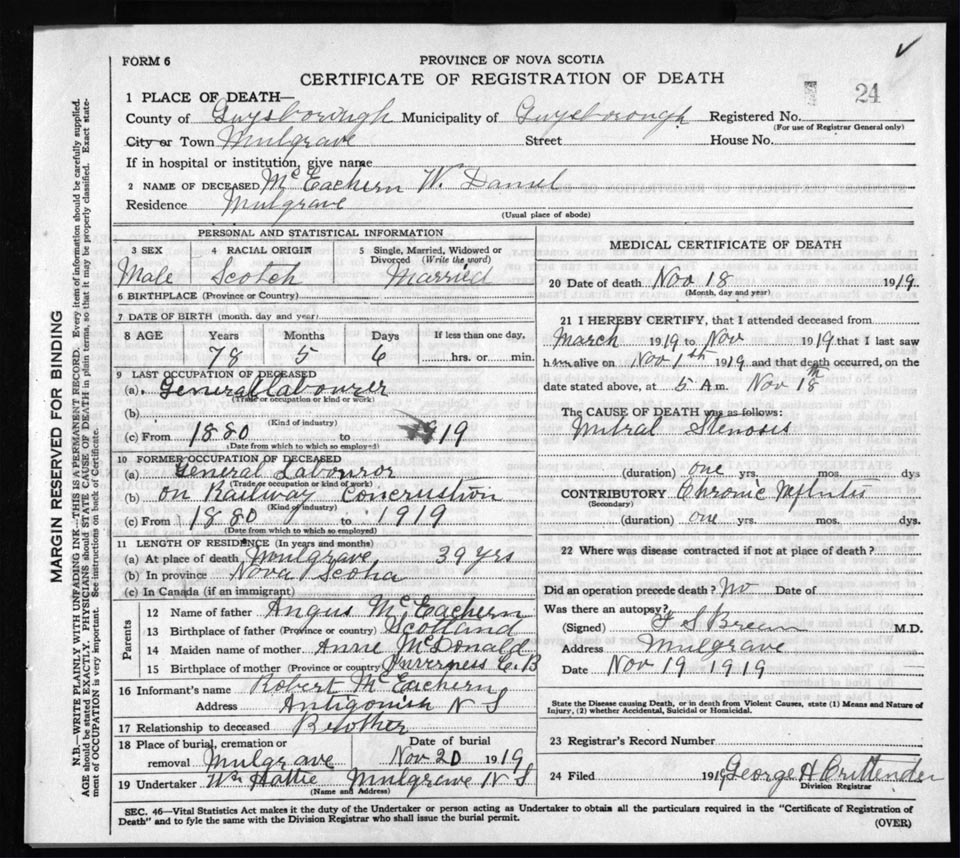 FORM 6
PROVINCE OF NOVA SCOTIA
CERTIFICATE OF REGISTRATION OF DEATH
24
1 PLACE OF DEATH—
County of Guysborough Municipality of Guysborough Registered No.
(For use of Registrar General only)
City or Town Mulgrave Street House No.
If in hospital or institution, give name
2 NAME OF DECEASED McEachern W. Daniel
Residence Mulgrave
(Usual place of abode)
PERSONAL AND STATISTICAL INFORMATION
3 SEX 4 RACIAL ORIGIN 5 Single, Married, Widowed or Divorced (Write the word)
Male Scotch Married
6 BIRTHPLACE (Province or Country)
7 DATE OF BIRTH (month, day and year)
8 AGE Years Months Days If less than one day,
78 5 6 hrs. or min.
9 LAST OCCUPATION OF DECEASED
(a) General labourer
(Trade or occupation or kind of work)
(b)
(Kind of industry)
(c) From 1880 to 1919
(Date from which to which so employed)
10 FORMER OCCUPATION OF DECEASED
(a) General Labouror
(Trade or occupation or kind of work)
(b) on Railway Concrustion
(Kind of industry)
(c) From 1880 to 1919
(Date from which to which so employed)
11 LENGTH OF RESIDENCE (In years and months)
(a) At place of death Mulgrave 39 yrs
(b) In province Nova Scotia
(c) In Canada (if an immigrant)
Parents
12 Name of father Angus McEachern
13 Birthplace of father (Province or country) Scotland
14 Maiden name of mother Annie McDonald
15 Birthplace of mother (Province or country) Inverness C.B
16 Informant's name Robert McEachern
Address Antigonish N S
17 Relationship to deceased Brother
18 Place of burial, cremation or removal Mulgrave Date of burial Nov 20 1919
19 Undertaker Wm Hattie Mulgrave N S
(Name and Address)
MEDICAL CERTIFICATE OF DEATH
20 Date of death Nov 18 1919.
(Month, day and year)
21 I HEREBY CERTIFY, that I attended deceased from
March 1919 to Nov 1919 that I last saw
him alive on Nov 1st 1919 and that death occurred, on the
date stated above, at 5 A.m. Nov 18th
The CAUSE OF DEATH was as follows:
Mitral Stenosis
(duration) one yrs. mos. dys
CONTRIBUTORY Chronic
(Secondary)
(duration) one yrs. mos. dys.
22 Where was disease contracted if not at place of death?
Did an operation precede death? No Date of
Was there an autopsy?
(Signed) M.D.
Address Mulgrave
Date Nov 19 1919
State the Disease causing Death, or in death from Violent Causes, state (1) Means and Nature of
Injury, (2) whether Accidental, Suicidal or Homicidal.
23 Registrar's Record Number
24 Filed 1919 George H Crittenden
Division Registrar
SEC. 46—Vital Statistics Act makes it the duty of the Undertaker or person acting as Undertaker to obtain all the particulars required in the "Certificate of Registration of
Death" and to fyle the same with the Division Registrar who shall issue the burial permit.
(OVER)
MARGIN RESERVED FOR BINDING
N.B.—WRITE PLAINLY WITH UNFADING INK—THIS IS A PERMANENT RECORD. Every item of information should be carefully supplied.
AGE should be stated EXACTLY. PHYSICIANS should STATE CAUSE OF DEATH in plain terms, so that it may be properly classified. Exact state-
ment of OCCUPATION is very important. See instructions on back of Certificate.